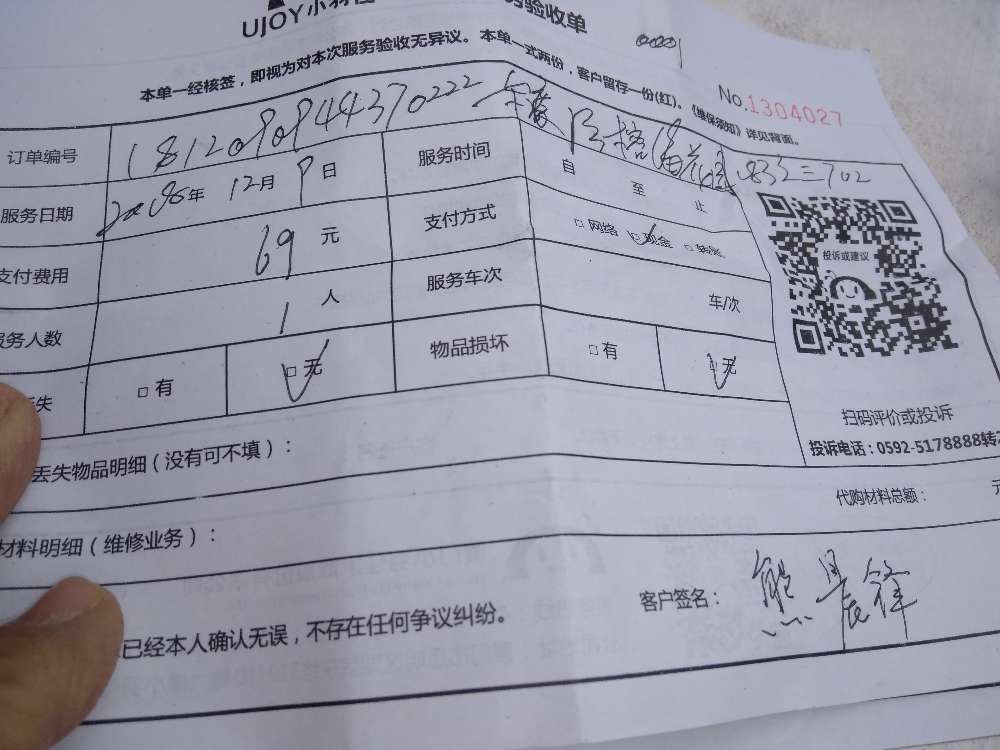 UJOY小羽佳
验收单
No.1304027
本单一经核签，即视为对本次服务验收无异议。本单一式两份，客户留存一份(红)。《维保须知》详见背面。
订单编号 181209084437 0222
服务日期 年 12月 9日 服务时间 自 至 止
支付费用 69 元 支付方式 □网络 □现金 □转账
服务人数 1 人 服务车次 车/次
失 □有 □无 物品损坏 □有 □无
投诉或建议
扫码评价或投诉
投诉电话：0592-5178888转2
丢失物品明细（没有可不填）：
材料明细（维修业务）： 代购材料总额： 元
已经本人确认无误，不存在任何争议纠纷。 客户签名： 熊晨锋